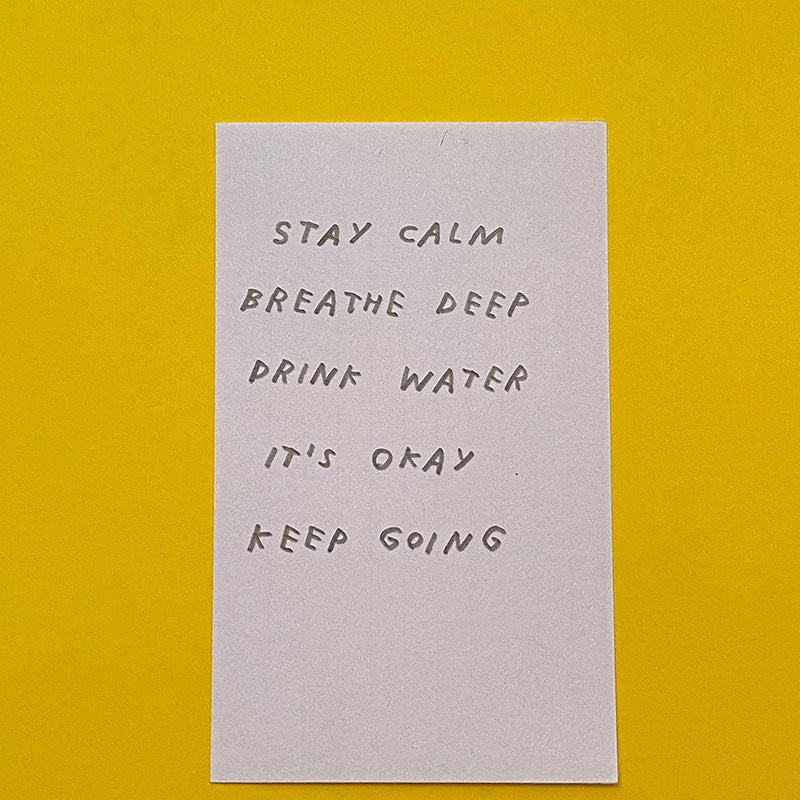 STAY CALM
BREATHE DEEP
DRINK WATER
IT'S OKAY
KEEP GOING